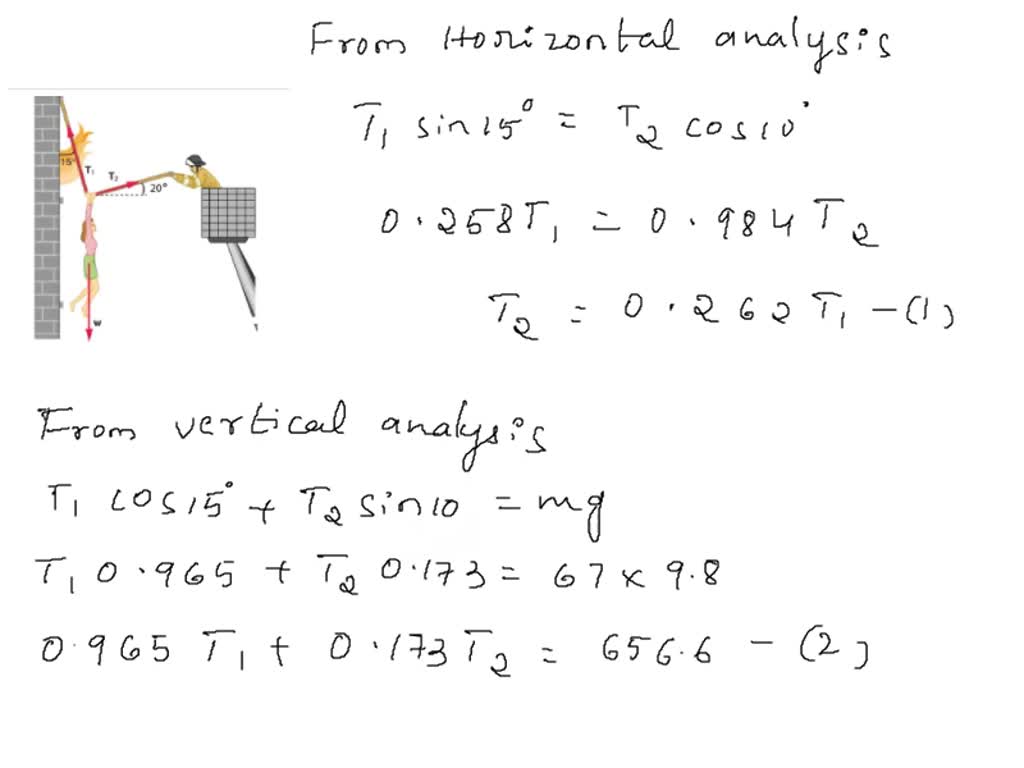 From Horizontal analysis
T₁ sin15° = T₂ cos10°
0.258T₁ = 0.984T₂
T₂ = 0.262T₁ -(1)
15°
T₁
T₂
20°
w
From vertical analysis
T₁ cos15° + T₂ sin10 = mg
T₁ 0.965 + T₂ 0.173 = 67 × 9.8
0.965 T₁ + 0.173T₂ = 656.6 - (2)